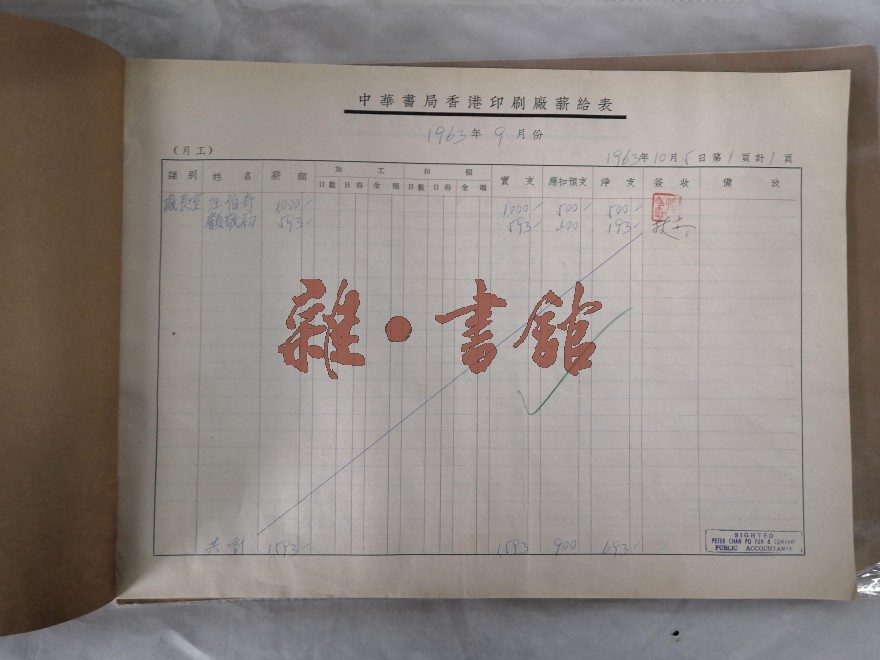 中華書局香港印刷廠薪給表
1963年9月份
(月工)
1963年10月5日第1頁計1頁
課別 姓名 薪額 加工 扣假 實支 應扣預支 淨支 簽收 備攷
日數 日得 金額 日數 日得 金額
廠長室 伯奇 1,000/ 1,000/ 500/ 500/
顧敬初 593/ 593/ 400 193/
雜·書館
共計 1,593/ 1,593 900 693/
SIGHTED
PETER CHAN PO FUN & COMPANY
PUBLIC ACCOUNTANTS